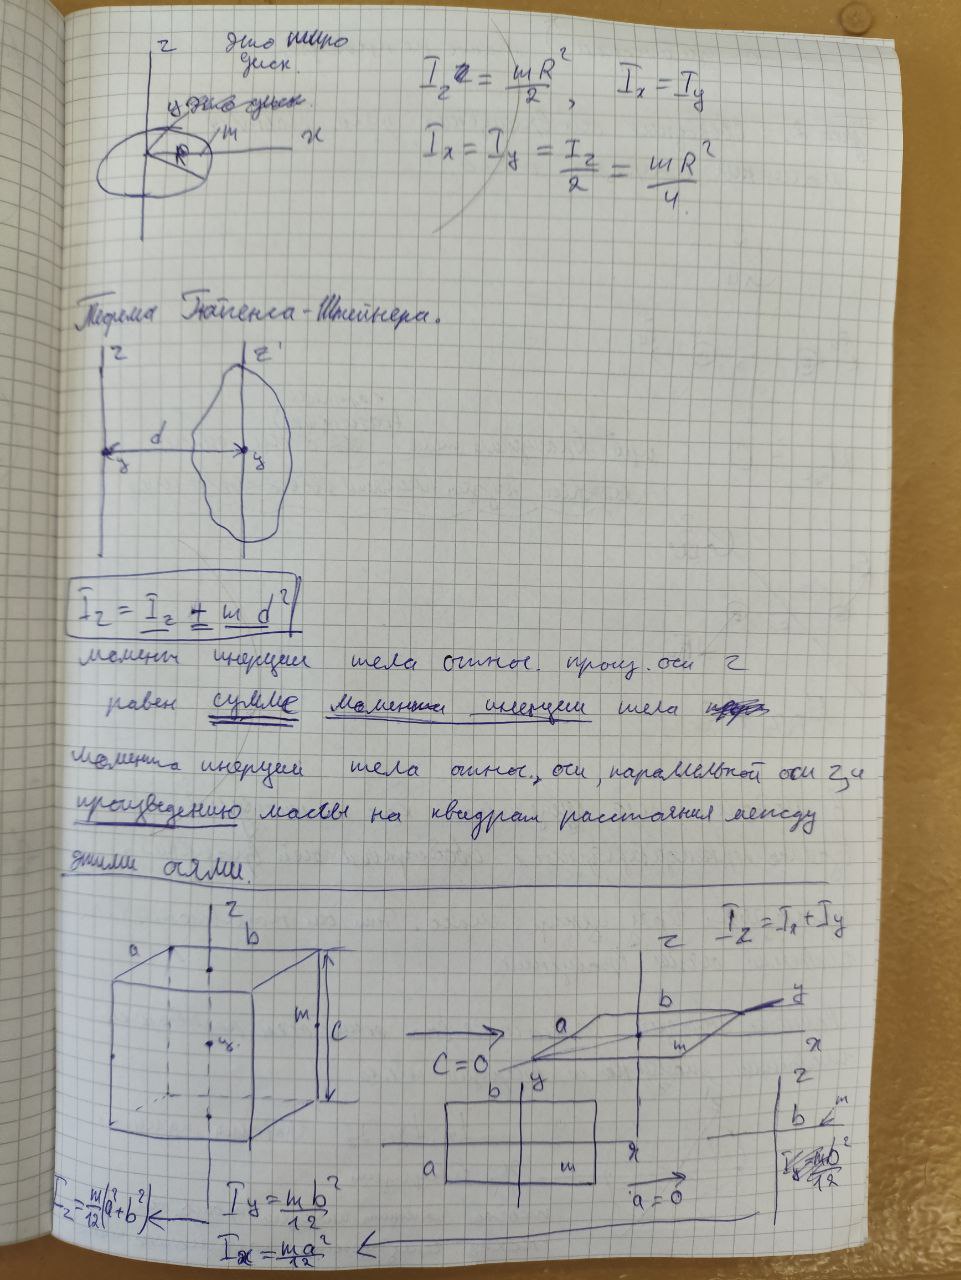 z
диск.
y
m
x
R
I_z = mR²/2, I_x = I_y
I_x = I_y = I_z/2 = mR²/4
Теорема Гюйгенса-Штейнера.
z z'
d
y y
I_z = I_z + m d²
момент инерции тела относ. произ. оси z
равен сумме момента инерции тела
момента инерции тела относ., оси, параллельной оси z, и
произведению массы на квадрат расстояния между
этими осями.
z
a b
m c
ц.
C=0
z I_z = I_x + I_y
a b y
m x
y
b
a m
x
a=0
z
b m
I_y = mb²/12
I_z = m/12(a²+b²)
I_y = mb²/12
I_x = ma²/12